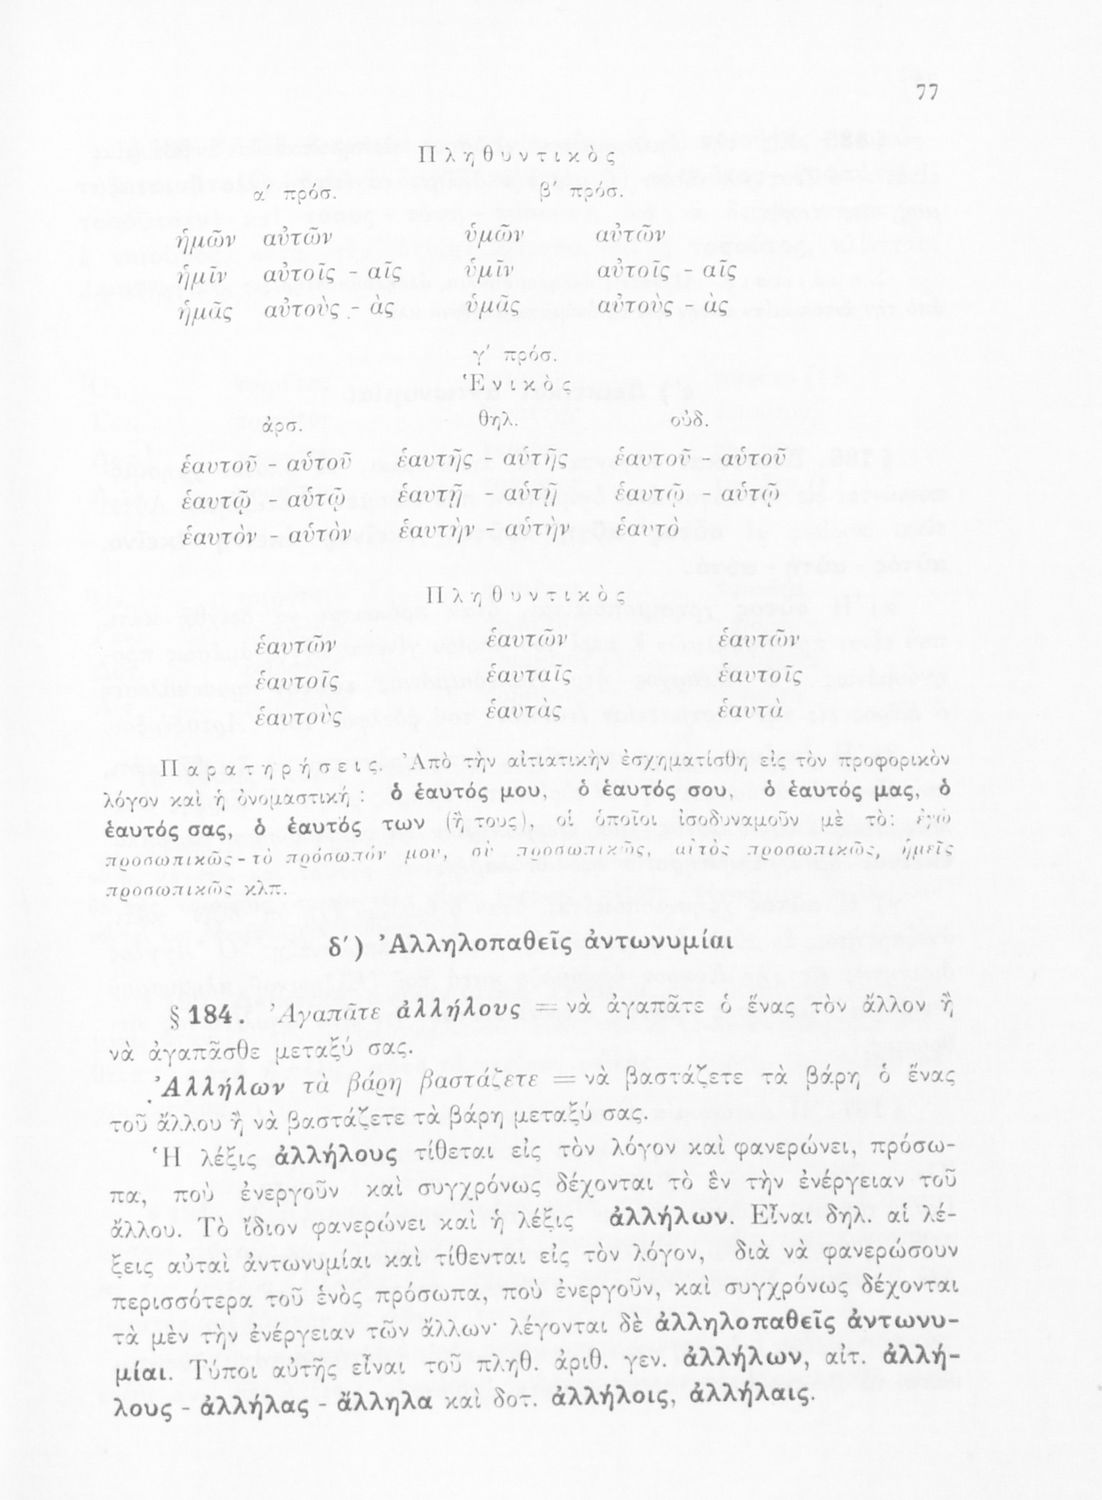 77
Πληθυντικὸς
α' πρόσ. β' πρόσ.
ἡμῶν αὐτῶν ὑμῶν αὐτῶν
ἡμῖν αὐτοῖς - αῖς ὑμῖν αὐτοῖς - αῖς
ἡμᾶς αὐτοὺς - ὰς ὑμᾶς αὐτοὺς - ὰς
γ' πρόσ.
Ἑνικὸς
ἀρσ. θηλ. οὐδ.
ἑαυτοῦ - αὑτοῦ ἑαυτῆς - αὑτῆς ἑαυτοῦ - αὑτοῦ
ἑαυτῷ - αὑτῷ ἑαυτῇ - αὑτῇ ἑαυτῷ - αὑτῷ
ἑαυτὸν - αὑτὸν ἑαυτὴν - αὑτὴν ἑαυτὸ
Πληθυντικὸς
ἑαυτῶν ἑαυτῶν ἑαυτῶν
ἑαυτοῖς ἑαυταῖς ἑαυτοῖς
ἑαυτοὺς ἑαυτὰς ἑαυτὰ
Παρατηρήσεις. Ἀπὸ τὴν αἰτιατικὴν ἐσχηματίσθη εἰς τὸν προφορικὸν
λόγον καὶ ἡ ὀνομαστική : ὁ ἑαυτός μου, ὁ ἑαυτός σου, ὁ ἑαυτός μας, ὁ
ἑαυτός σας, ὁ ἑαυτός των (ἢ τους), οἱ ὁποῖοι ἰσοδυναμοῦν μὲ τὸ: ἐγὼ
προσωπικῶς - τὸ πρόσωπόν μου, σὺ προσωπικῶς, αὐτὸς προσωπικῶς, ἡμεῖς
προσωπικῶς κλπ.
δ') Ἀλληλοπαθεῖς ἀντωνυμίαι
§ 184. Ἀγαπᾶτε ἀλλήλους = νὰ ἀγαπᾶτε ὁ ἕνας τὸν ἄλλον ἢ
νὰ ἀγαπᾶσθε μεταξύ σας.
Ἀλλήλων τὰ βάρη βαστάζετε = νὰ βαστάζετε τὰ βάρη ὁ ἕνας
τοῦ ἄλλου ἢ νὰ βαστάζετε τὰ βάρη μεταξύ σας.
Ἡ λέξις ἀλλήλους τίθεται εἰς τὸν λόγον καὶ φανερώνει, πρόσω-
πα, ποὺ ἐνεργοῦν καὶ συγχρόνως δέχονται τὸ ἓν τὴν ἐνέργειαν τοῦ
ἄλλου. Τὸ ἴδιον φανερώνει καὶ ἡ λέξις ἀλλήλων. Εἶναι δηλ. αἱ λέ-
ξεις αὐταὶ ἀντωνυμίαι καὶ τίθενται εἰς τὸν λόγον, διὰ νὰ φανερώσουν
περισσότερα τοῦ ἑνὸς πρόσωπα, ποὺ ἐνεργοῦν, καὶ συγχρόνως δέχονται
τὰ μὲν τὴν ἐνέργειαν τῶν ἄλλων· λέγονται δὲ ἀλληλοπαθεῖς ἀντωνυ-
μίαι. Τύποι αὐτῆς εἶναι τοῦ πληθ. ἀριθ. γεν. ἀλλήλων, αἰτ. ἀλλή-
λους - ἀλλήλας - ἄλληλα καὶ δοτ. ἀλλήλοις, ἀλλήλαις.